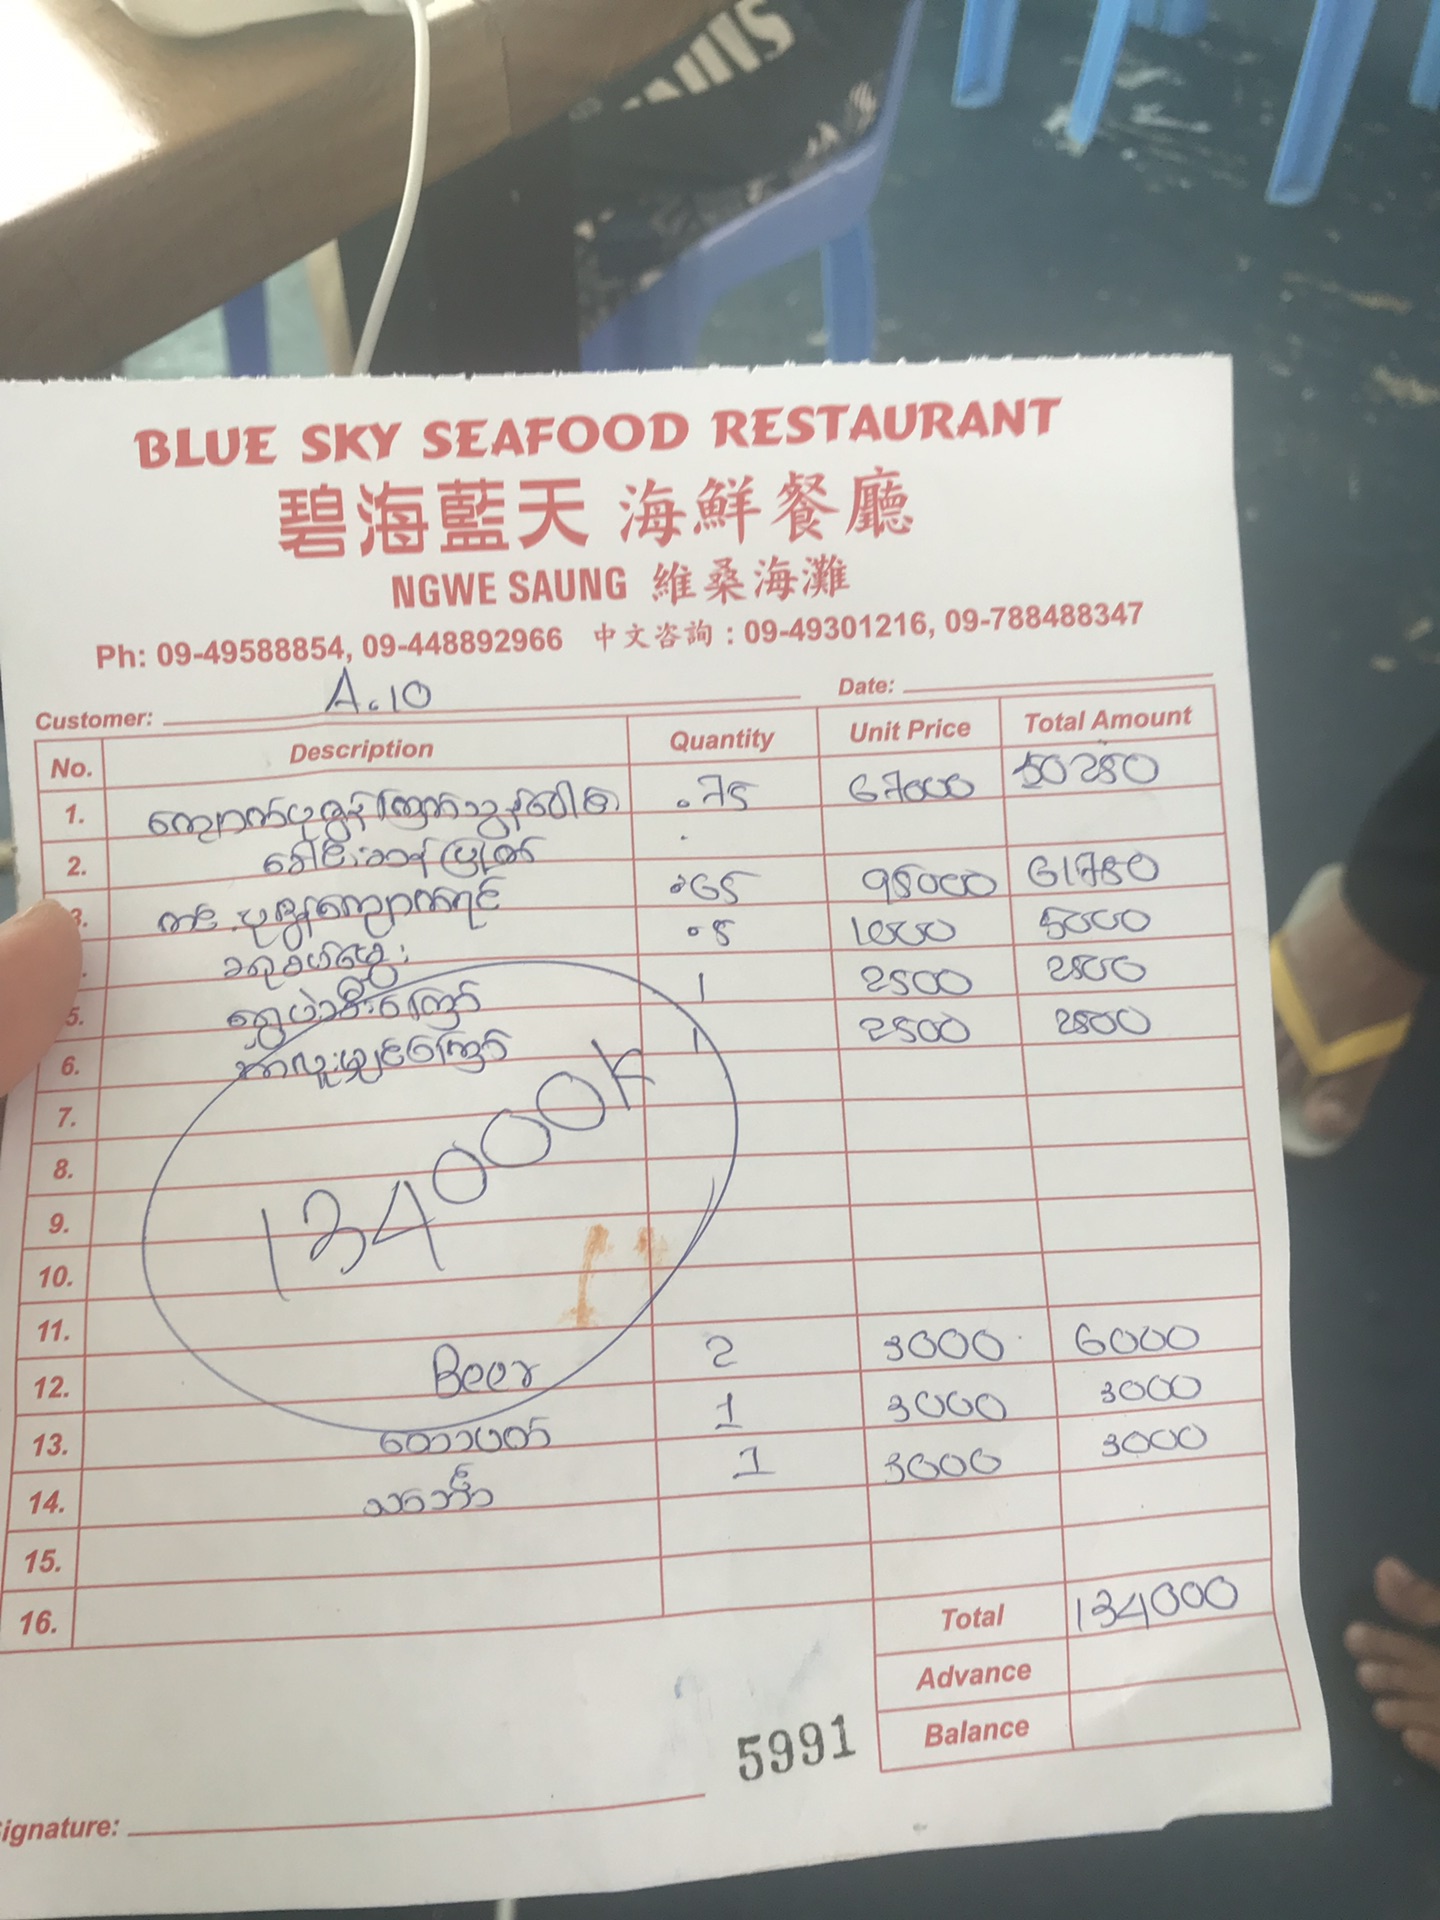 BLUE SKY SEAFOOD RESTAURANT
碧海藍天 海鮮餐廳
NGWE SAUNG 維桑海灘
Ph: 09-49588854, 09-448892966 中文咨詢 : 09-49301216, 09-788488347
Customer: A.10 Date:
No. Description Quantity Unit Price Total Amount
1. .75 67000 50250
2.
3. .65 95000 61750
.5 1000 5000
5. 1 2500 2500
6. 1 2500 2500
7.
8.
134000K
9.
10.
11.
12. Beer 2 3000 6000
13. 1 3000 3000
14. 1 3000 3000
15.
16.
Total 134000
Advance
Balance
5991
ignature: